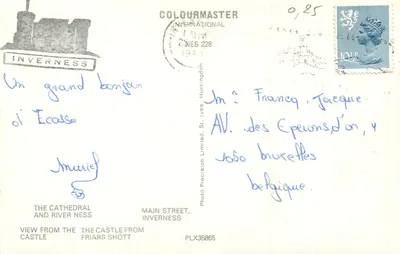 COLOURMASTER
INTERNATIONAL
0,25
INVERNESS
Un grand bonjour
d'Ecosse
Muriel
THE CATHEDRAL
AND RIVER NESS
MAIN STREET,
INVERNESS
VIEW FROM THE
CASTLE
THE CASTLE FROM
FRIARS SHOTT
PLX35865
Photo Precision Limited, St. Ives, Huntingdon
Francq
AV. des Eperons d'or, 4
1050 bruxelles
belgique.